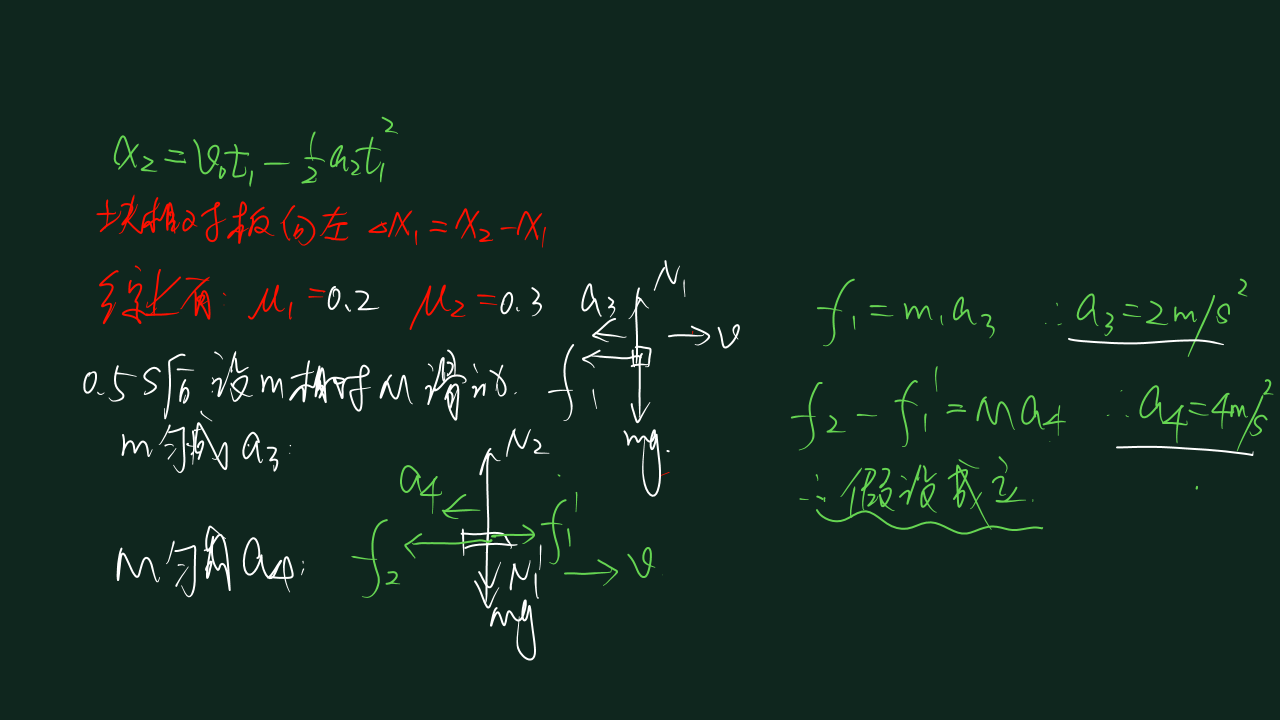 x₂=v₀t₁-½a₂t₁²
块相对板向左 △x₁=x₂-x₁
综上有: μ₁=0.2 μ₂=0.3
0.5s后设m相对M滑动.
m匀减a₃:
a₃ N₁ v f₁ mg
M匀减a₄:
a₄ N₂ f₂ f₁' N₁' v mg
f₁=m₁a₃ ∴a₃=2m/s²
f₂-f₁'=Ma₄ ∴a₄=4m/s²
∴假设成立.